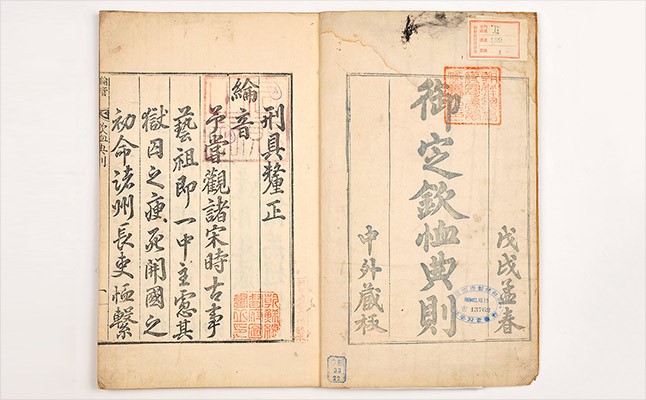 戊戌孟春
御定欽恤典則
中外藏板
刑具釐正
綸音
予嘗觀諸宋時古事
藝祖即一中主憲其
獄囚之瘐死開國之
初命諸州長吏恤繫
綸音
欽恤典則
13769
22
22